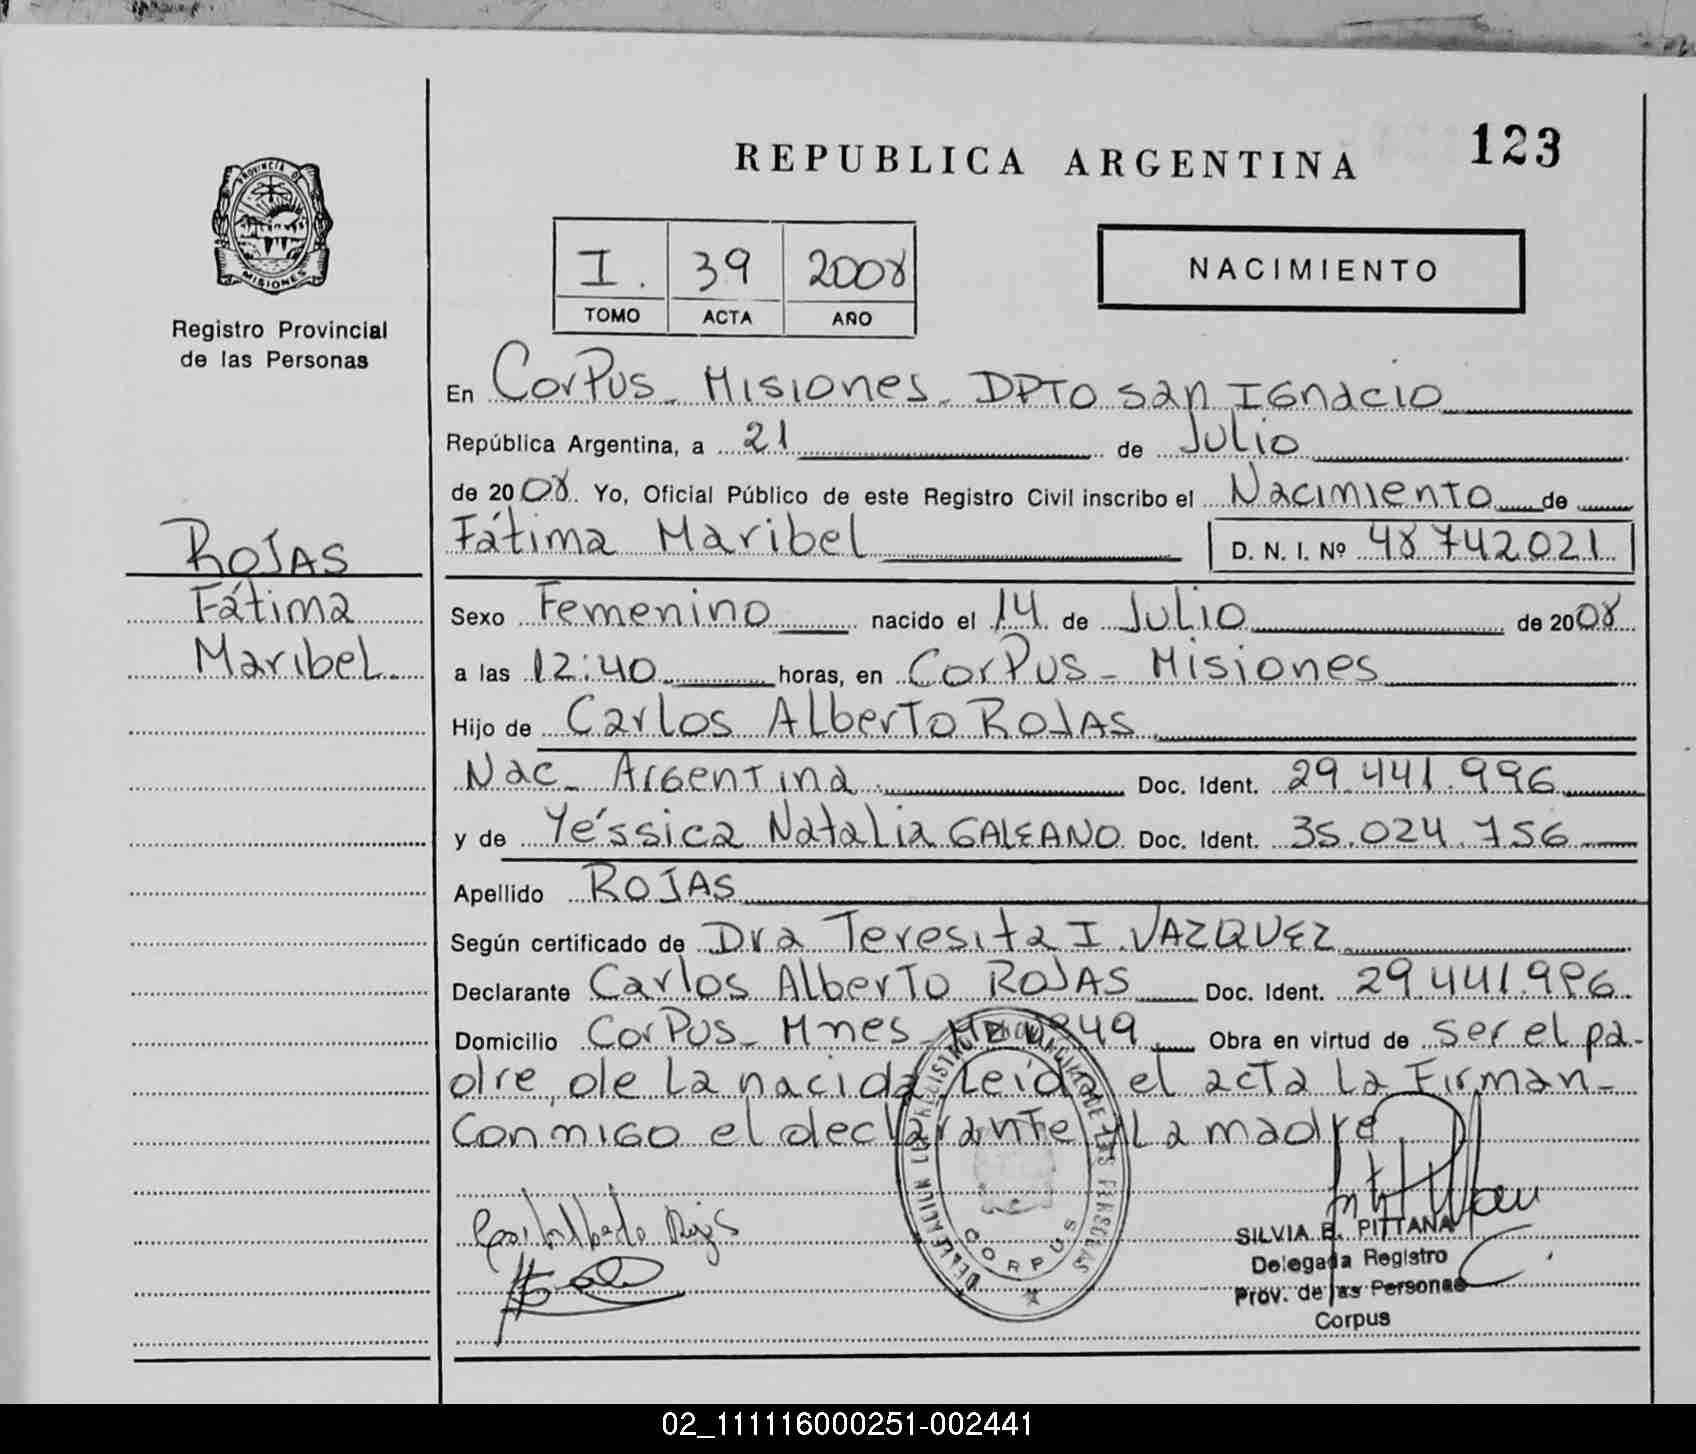 REPUBLICA ARGENTINA
123
PROVINCIA DE
MISIONES
Registro Provincial
de las Personas
I. 39 2008
TOMO ACTA AÑO
NACIMIENTO
En Corpus - Misiones - DPTO San Ignacio
República Argentina, a 21 de Julio
de 2008. Yo, Oficial Público de este Registro Civil inscribo el Nacimiento de
Fátima Maribel D. N. I. Nº 48742021
ROJAS
Fátima
Maribel
Sexo Femenino nacido el 14 de Julio de 2008
a las 12:40 horas, en Corpus - Misiones
Hijo de Carlos Alberto ROJAS
Nac - Argentina Doc. Ident. 29.441.996
y de Yéssica Natalia GALEANO Doc. Ident. 35.024.756
Apellido ROJAS
Según certificado de Dra Teresita I. VAZQUEZ
Declarante Carlos Alberto ROJAS Doc. Ident. 29.441.996
Domicilio Corpus - Mnes - 49 Obra en virtud de ser el pa-
dre de la nacida. Leída el acta la Firman-
conmigo el declarante y la madre
CORPUS
SILVIA E. PITTANA
Delegada Registro
Prov. de las Personas
Corpus
02_111116000251-002441